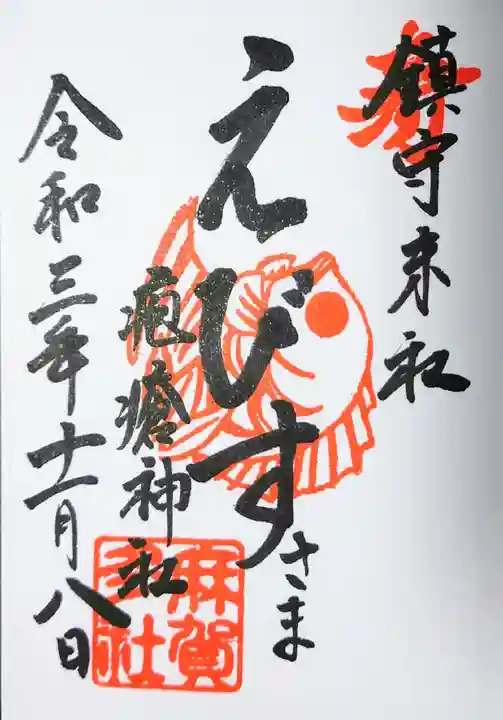 奉
鎮守末社
えびす
さま
疱瘡神社
令和三年十一月八日
麻賀多神社